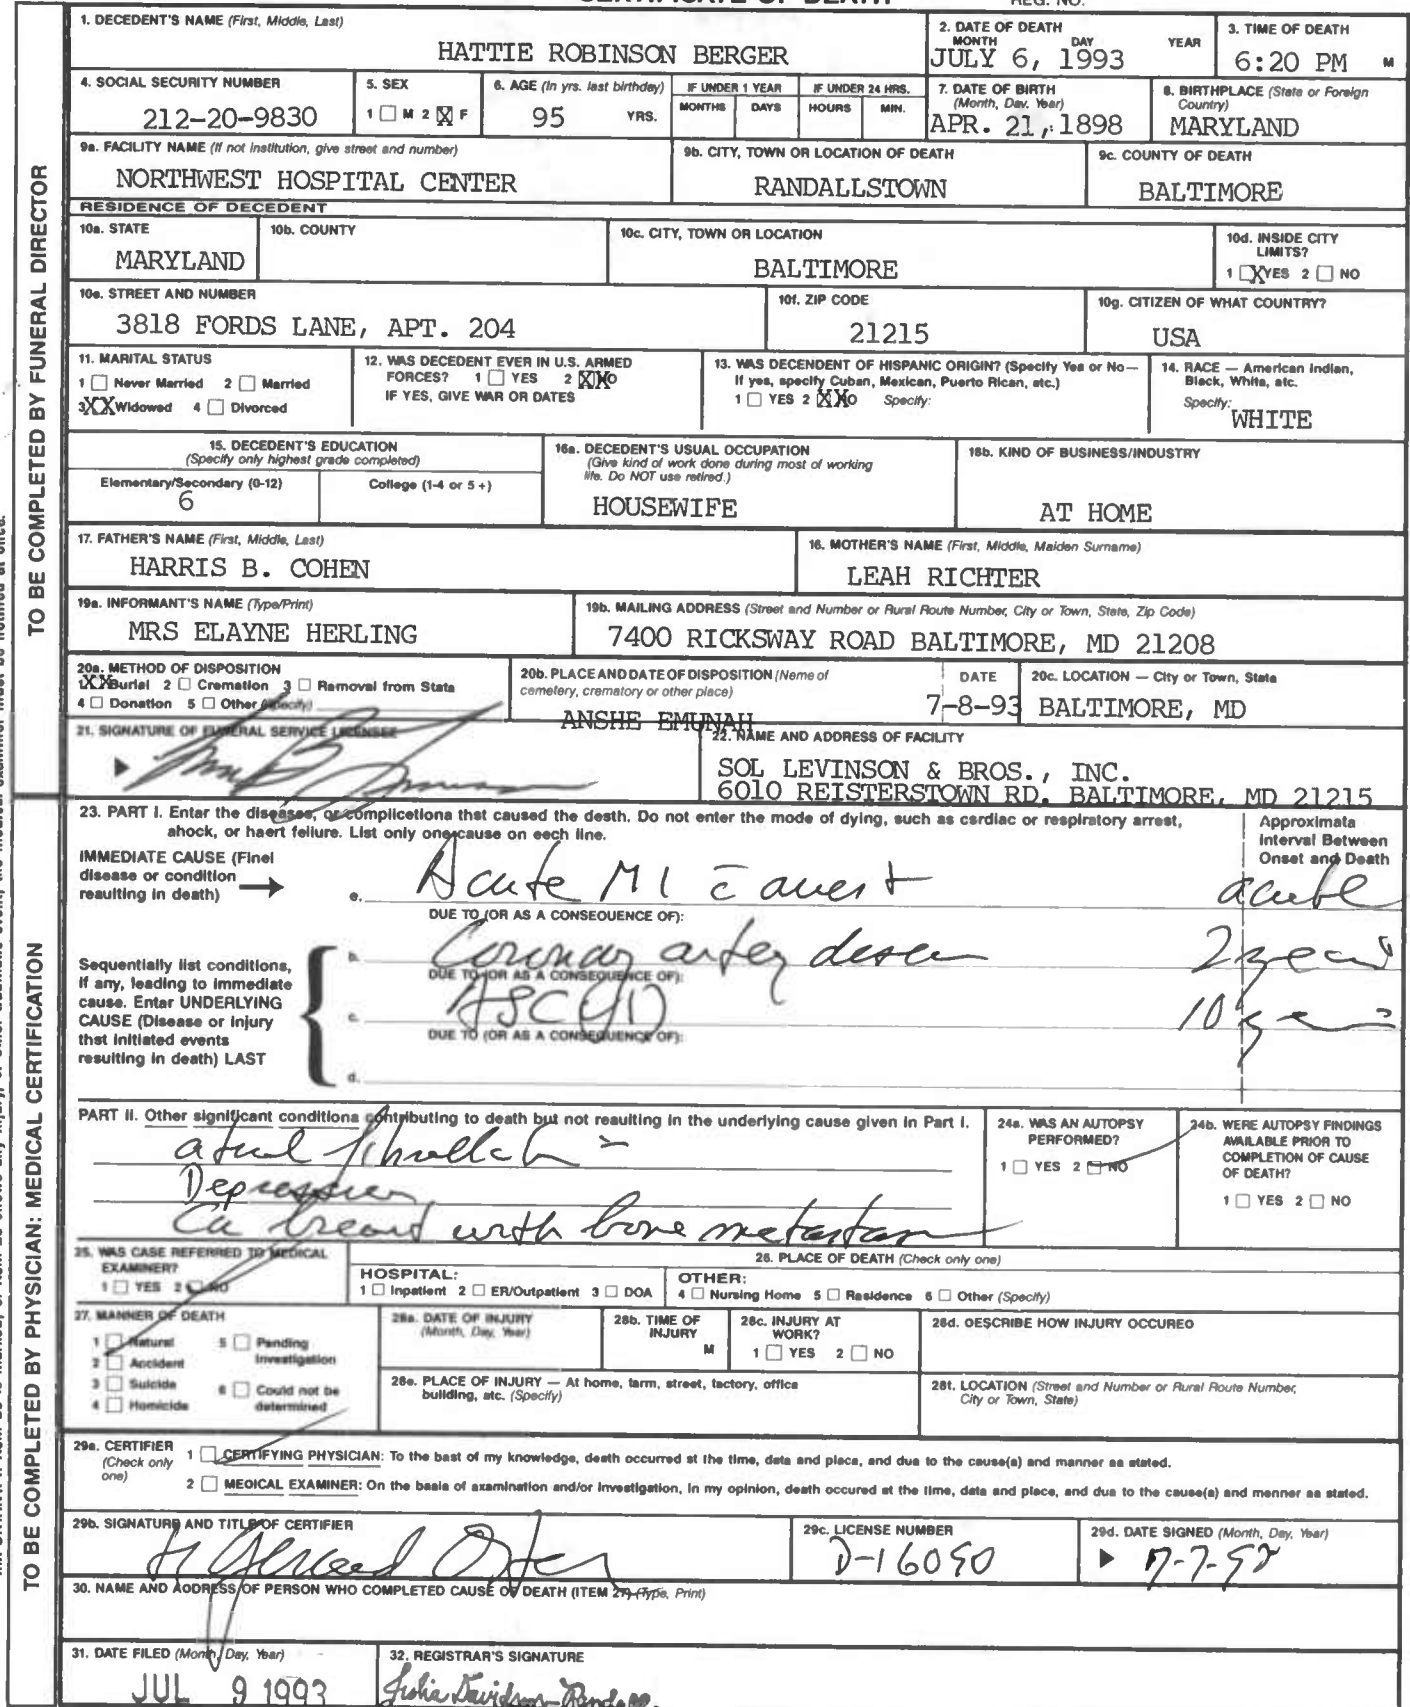 CERTIFICATE OF DEATH
REG. NO.
1. DECEDENT'S NAME (First, Middle, Last)
HATTIE ROBINSON BERGER
2. DATE OF DEATH
MONTH DAY YEAR
JULY 6, 1993
3. TIME OF DEATH
6:20 PM M
4. SOCIAL SECURITY NUMBER
212-20-9830
5. SEX
1 ☐ M 2 ☒ F
6. AGE (In yrs. last birthday)
95 YRS.
IF UNDER 1 YEAR
MONTHS DAYS
IF UNDER 24 HRS.
HOURS MIN.
7. DATE OF BIRTH
(Month, Day, Year)
APR. 21, 1898
8. BIRTHPLACE (State or Foreign
Country)
MARYLAND
9a. FACILITY NAME (If not institution, give street and number)
NORTHWEST HOSPITAL CENTER
9b. CITY, TOWN OR LOCATION OF DEATH
RANDALLSTOWN
9c. COUNTY OF DEATH
BALTIMORE
RESIDENCE OF DECEDENT
10a. STATE
MARYLAND
10b. COUNTY
10c. CITY, TOWN OR LOCATION
BALTIMORE
10d. INSIDE CITY
LIMITS?
1 ☒ YES 2 ☐ NO
10e. STREET AND NUMBER
3818 FORDS LANE, APT. 204
10f. ZIP CODE
21215
10g. CITIZEN OF WHAT COUNTRY?
USA
11. MARITAL STATUS
1 ☐ Never Married 2 ☐ Married
3 XX Widowed 4 ☐ Divorced
12. WAS DECEDENT EVER IN U.S. ARMED
FORCES? 1 ☐ YES 2 XX NO
IF YES, GIVE WAR OR DATES
13. WAS DECENDENT OF HISPANIC ORIGIN? (Specify Yes or No—
If yes, specify Cuban, Mexican, Puerto Rican, etc.)
1 ☐ YES 2 XX NO Specify:
14. RACE — American Indian,
Black, White, etc.
Specify:
WHITE
15. DECEDENT'S EDUCATION
(Specify only highest grade completed)
Elementary/Secondary (0-12)
6
College (1-4 or 5+)
16a. DECEDENT'S USUAL OCCUPATION
(Give kind of work done during most of working
life. Do NOT use retired.)
HOUSEWIFE
16b. KIND OF BUSINESS/INDUSTRY
AT HOME
17. FATHER'S NAME (First, Middle, Last)
HARRIS B. COHEN
16. MOTHER'S NAME (First, Middle, Maiden Surname)
LEAH RICHTER
19a. INFORMANT'S NAME (Type/Print)
MRS ELAYNE HERLING
19b. MAILING ADDRESS (Street and Number or Rural Route Number, City or Town, State, Zip Code)
7400 RICKSWAY ROAD BALTIMORE, MD 21208
20a. METHOD OF DISPOSITION
1 XX Burial 2 ☐ Cremation 3 ☐ Removal from State
4 ☐ Donation 5 ☐ Other (Specify)
20b. PLACE AND DATE OF DISPOSITION (Name of
cemetery, crematory or other place)
ANSHE EMUNAH
DATE
7-8-93
20c. LOCATION — City or Town, State
BALTIMORE, MD
21. SIGNATURE OF FUNERAL SERVICE LICENSEE
22. NAME AND ADDRESS OF FACILITY
SOL LEVINSON & BROS., INC.
6010 REISTERSTOWN RD. BALTIMORE, MD 21215
TO BE COMPLETED BY FUNERAL DIRECTOR
23. PART I. Enter the diseases, or complications that caused the death. Do not enter the mode of dying, such as cardiac or respiratory arrest,
shock, or heart failure. List only one cause on each line.
Approximate
Interval Between
Onset and Death
IMMEDIATE CAUSE (Final
disease or condition
resulting in death)
a. Acute MI c̄ arrest
acute
DUE TO (OR AS A CONSEQUENCE OF):
Sequentially list conditions,
if any, leading to immediate
cause. Enter UNDERLYING
CAUSE (Disease or injury
that initiated events
resulting in death) LAST
b. Coronary artery disease
2 years
DUE TO (OR AS A CONSEQUENCE OF):
c. ASCVD
10 years
DUE TO (OR AS A CONSEQUENCE OF):
d.
PART II. Other significant conditions contributing to death but not resulting in the underlying cause given in Part I.
atrial fibrillation
Depression
Ca breast with bone metastases
24a. WAS AN AUTOPSY
PERFORMED?
1 ☐ YES 2 ☐ NO
24b. WERE AUTOPSY FINDINGS
AVAILABLE PRIOR TO
COMPLETION OF CAUSE
OF DEATH?
1 ☐ YES 2 ☐ NO
25. WAS CASE REFERRED TO MEDICAL
EXAMINER?
1 ☐ YES 2 ☐ NO
26. PLACE OF DEATH (Check only one)
HOSPITAL:
1 ☐ Inpatient 2 ☐ ER/Outpatient 3 ☐ DOA
OTHER:
4 ☐ Nursing Home 5 ☐ Residence 6 ☐ Other (Specify)
27. MANNER OF DEATH
1 ☐ Natural 5 ☐ Pending
Investigation
2 ☐ Accident
3 ☐ Suicide 6 ☐ Could not be
determined
4 ☐ Homicide
28a. DATE OF INJURY
(Month, Day, Year)
28b. TIME OF
INJURY
M
28c. INJURY AT
WORK?
1 ☐ YES 2 ☐ NO
28d. DESCRIBE HOW INJURY OCCURED
28e. PLACE OF INJURY — At home, farm, street, factory, office
building, etc. (Specify)
28f. LOCATION (Street and Number or Rural Route Number,
City or Town, State)
29a. CERTIFIER
(Check only
one)
1 ☐ CERTIFYING PHYSICIAN: To the best of my knowledge, death occurred at the time, date and place, and due to the cause(s) and manner as stated.
2 ☐ MEDICAL EXAMINER: On the basis of examination and/or investigation, in my opinion, death occured at the time, date and place, and due to the cause(s) and manner as stated.
29b. SIGNATURE AND TITLE OF CERTIFIER
29c. LICENSE NUMBER
D-16090
29d. DATE SIGNED (Month, Day, Year)
30. NAME AND ADDRESS OF PERSON WHO COMPLETED CAUSE OF DEATH (ITEM 27) (Type, Print)
31. DATE FILED (Month, Day, Year)
JUL 9 1993
32. REGISTRAR'S SIGNATURE
TO BE COMPLETED BY PHYSICIAN: MEDICAL CERTIFICATION